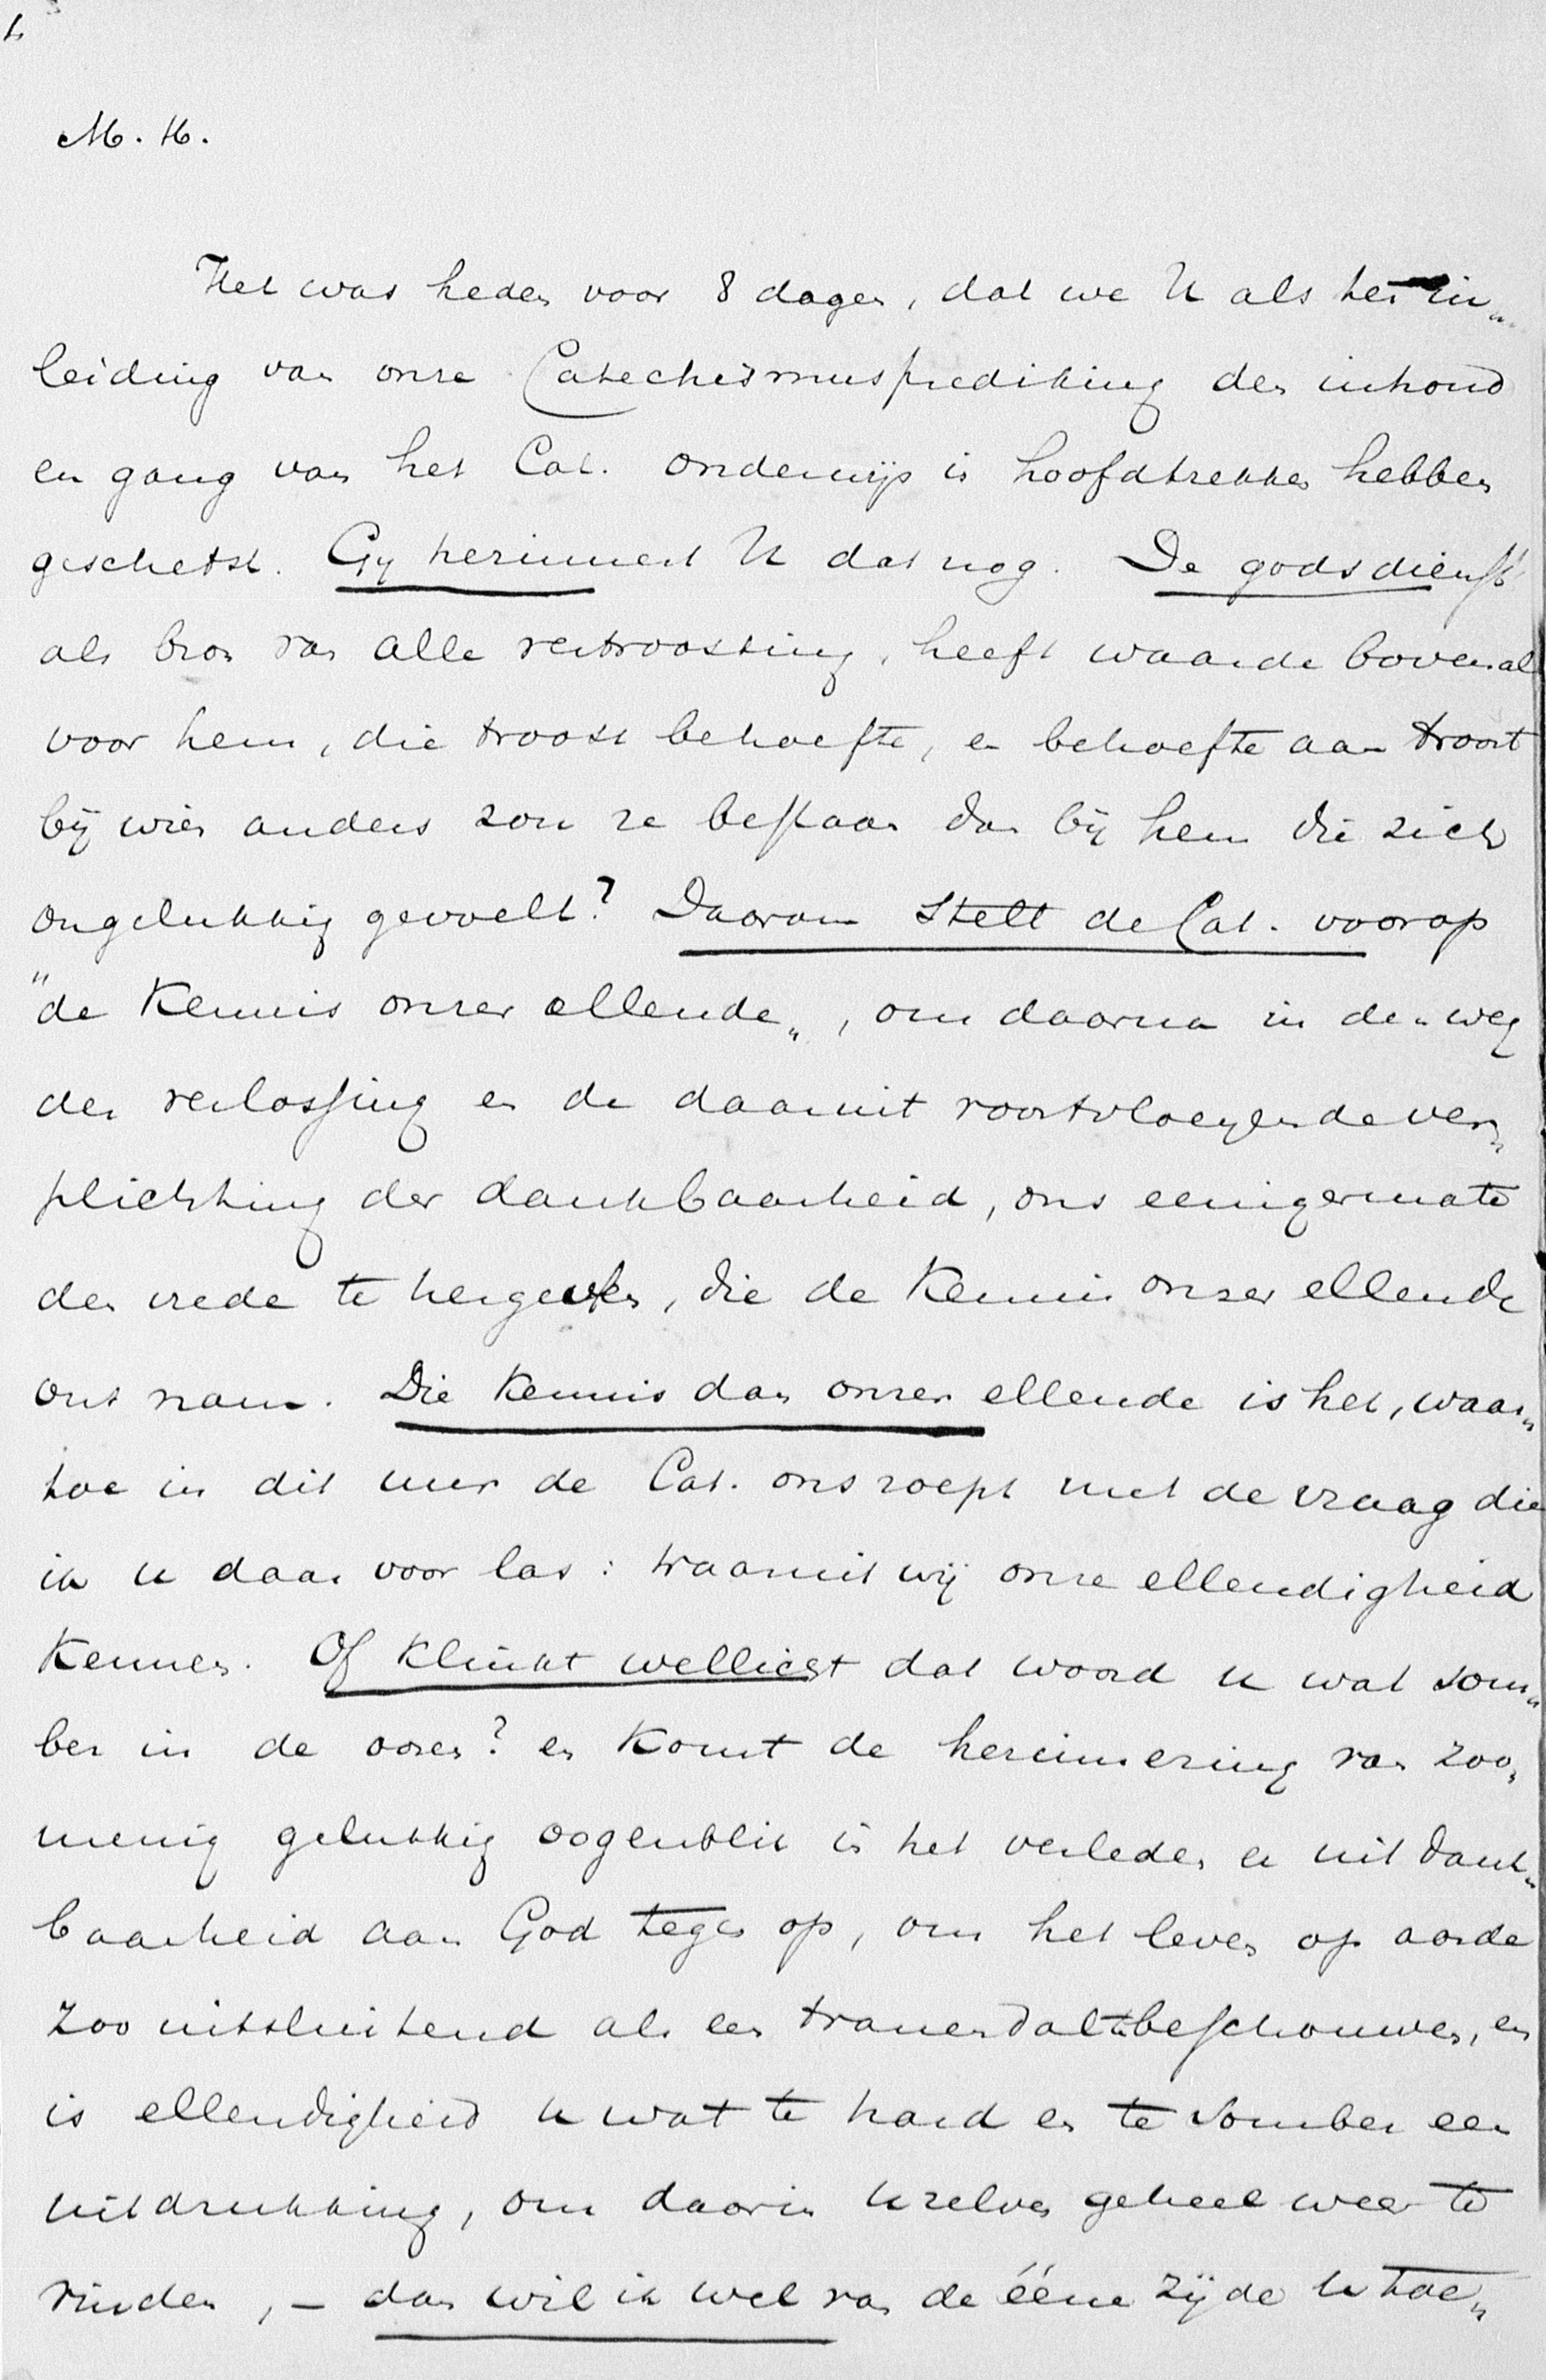 1.
M. H.
Het was heden voor 8 dagen, dat we U als ter in„
leiding van onze Catechismusprediking den inhoud
en gang van het Cat. onderwijs in hoofdtrekken hebben
geschetst. Gy herinnert U dat nog. De godsdienst
als bron van alle vertroosting, heeft waarde bovenal
voor hem, die troost behoefte, en behoefte aan troost
bij wien anders zou ze bestaan dan bij hem die zich
ongelukkig gevoelt? Daarom stelt de Cat. voorop
"de Kennis onzer ellende„, om daarna in den weg
der verlossing en de daaruit voortvloeyende ver„
plichting der dankbaarheid, ons eenigermate
den vrede te hergeven, die de Kennis onzer ellende
ons nam. Die Kennis dan onzer ellende is het, waar„
toe in dit uur de Cat. ons roept met de vraag die
ik u daar voor las: waaruit wij onze ellendigheid
Kennen. Of klinkt wellicht dat woord u wat som„
ber in de ooren? en Komt de herinnering van zoo„
menig gelukkig oogenblik in het verleden en uit dank„
baarheid aan God tegen op, om het leven op aarde
zoo uitsluitend als een tranendal te beschouwen, en
is ellendigheid u wat te hard en te somber een
uitdrukking, om daarin uzelven geheel weer te
vinden, – dan wil ik wel van de ééne zijde u toe„